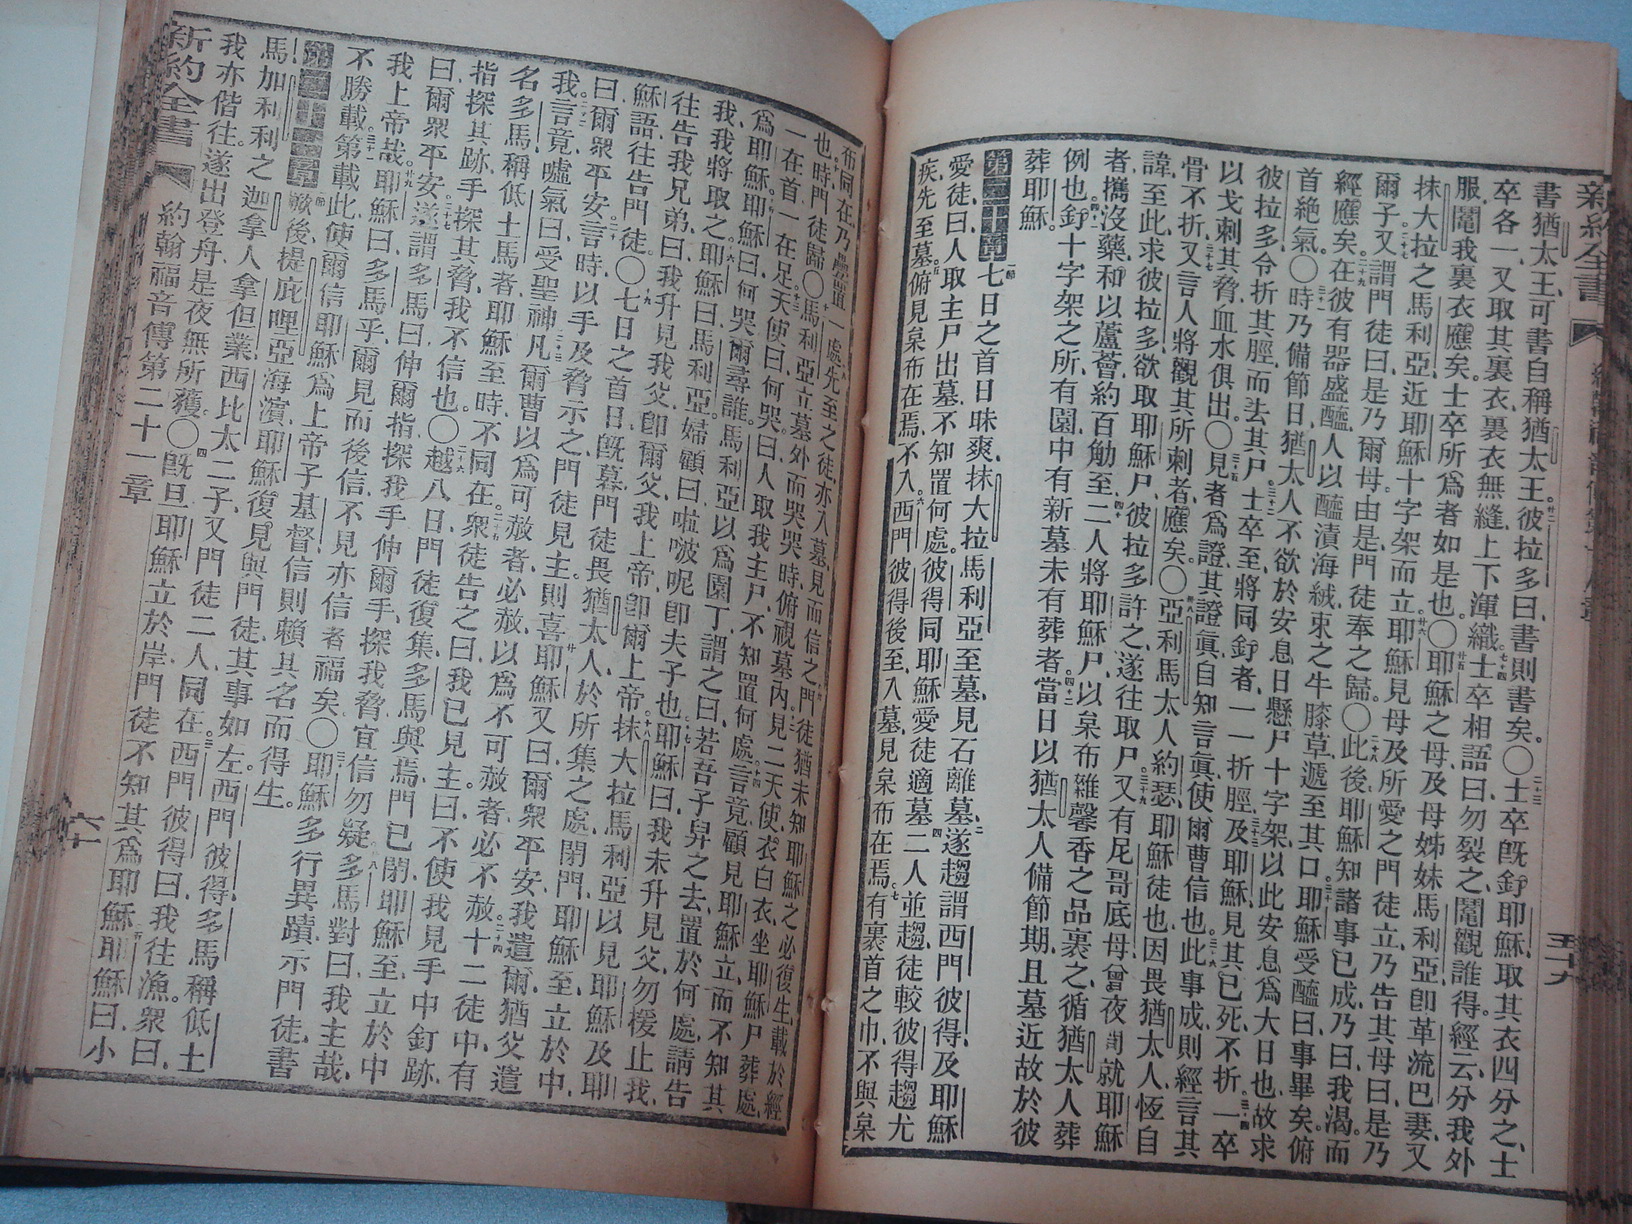 新約全書
五十九
書猶太王可書自稱猶太王彼拉多曰書則書矣〇士卒旣釘耶穌取其衣四分之士
卒各一又取其裏衣裏衣無縫上下渾織士卒相語曰勿裂之鬮觀誰得經云分我外
服鬮我裏衣應矣士卒所爲者如是也〇耶穌之母及母姊妹馬利亞卽革流巴妻又
抹大拉之馬利亞近耶穌十字架而立耶穌見母及所愛之門徒立乃告其母曰是乃
爾子又謂門徒曰是乃爾母由是門徒奉之歸〇此後耶穌知諸事已成乃曰我渴而
經應矣在彼有器盛醯人以醯漬海絨束之牛膝草遞至其口耶穌受醯曰事畢矣俯
首絶氣〇時乃備節日猶太人不欲於安息日懸尸十字架以此安息爲大日也故求
彼拉多令折其脛而去其尸士卒至將同釘者一一折脛及耶穌見其已死不折一卒
以戈刺其脅血水俱出〇見者爲證其證眞自知言眞使爾曹信也此事成則經言其
骨不折又言人將觀其所刺者應矣〇亞利馬太人約瑟耶穌徒也因畏猶太人恆自
諱至此求彼拉多欲取耶穌尸彼拉多許之遂往取尸又有尼哥底母曾夜間就耶穌
者攜沒藥和以蘆薈約百觔至二人將耶穌尸以枲布雜馨香之品裹之循猶太人葬
例也釘十字架之所有園中有新墓未有葬者當日以猶太人備節期且墓近故於彼
葬耶穌
第二十章 一節七日之首日昧爽抹大拉馬利亞至墓見石離墓遂趨謂西門彼得及耶穌
愛徒曰人取主尸出墓不知置何處彼得同耶穌愛徒適墓二人並趨徒較彼得趨尤
疾先至墓俯見枲布在焉不入西門彼得後至入墓見枲布在焉有裹首之巾不與枲
布同在乃疊置一處先至之徒亦入墓見而信之門徒猶未知耶穌之必復生載於經
也時門徒歸〇馬利亞立墓外而哭哭時俯視墓內見二天使衣白衣坐耶穌尸葬處
一在首一在足天使曰何哭曰人取我主尸不知置何處言竟顧見耶穌立而不知其
爲耶穌耶穌曰何哭爾尋誰馬利亞以爲園丁謂之曰若吾子舁之去置於何處請告
我我將取之耶穌曰馬利亞婦顧曰啦啵呢卽夫子也耶穌曰我未升見父勿捫止我
往告我兄弟曰我升見我父卽爾父我上帝卽爾上帝抹大拉馬利亞以見耶穌及耶
穌語往告門徒〇七日之首日旣暮門徒畏猶太人於所集之處閉門耶穌至立於中
曰爾眾平安言時以手及脅示之門徒見主則喜耶穌又曰爾眾平安我遣爾猶父遣
我言竟噓氣曰受聖神凡爾曹以爲可赦者必赦以爲不可赦者必不赦十二徒中有
名多馬稱低土馬者耶穌至時不同在眾徒告之曰我已見主曰不使我見手中釘跡
指探其跡手探其脅我不信也〇越八日門徒復集多馬與焉門已閉耶穌至立於中
曰爾眾平安遂謂多馬曰伸爾指探我手伸爾手探我脅宜信勿疑多馬對曰我主哉
我上帝哉耶穌曰多馬乎爾見而後信不見亦信者福矣〇耶穌多行異蹟示門徒書
不勝載第載此使爾信耶穌爲上帝子基督信則賴其名而得生
第二十一章 一節厥後提庇哩亞海濱耶穌復見與門徒其事如左西門彼得多馬稱低土
馬加利利之迦拿人拿但業西比太二子又門徒二人同在西門彼得曰我往漁眾曰
我亦偕往遂出登舟是夜無所獲〇旣旦耶穌立於岸門徒不知其爲耶穌耶穌曰小
新約全書
約翰福音傳第二十一章
六十